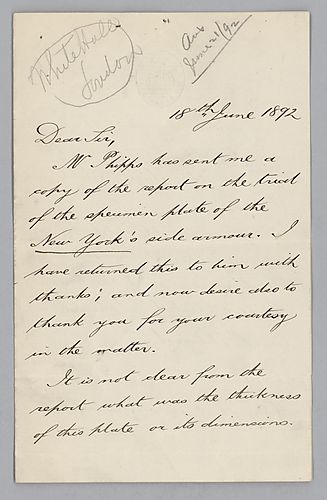 White Hall
London
Ans
June 21/92
18th June 1892
Dear Sir,
Mr Phipps has sent me a
copy of the report on the trial
of the specimen plate of the
New York's side armour. I
have returned this to him with
thanks; and now desire also to
thank you for your courtesy
in the matter.
It is not clear from the
report what was the thickness
of this plate or its dimensions.